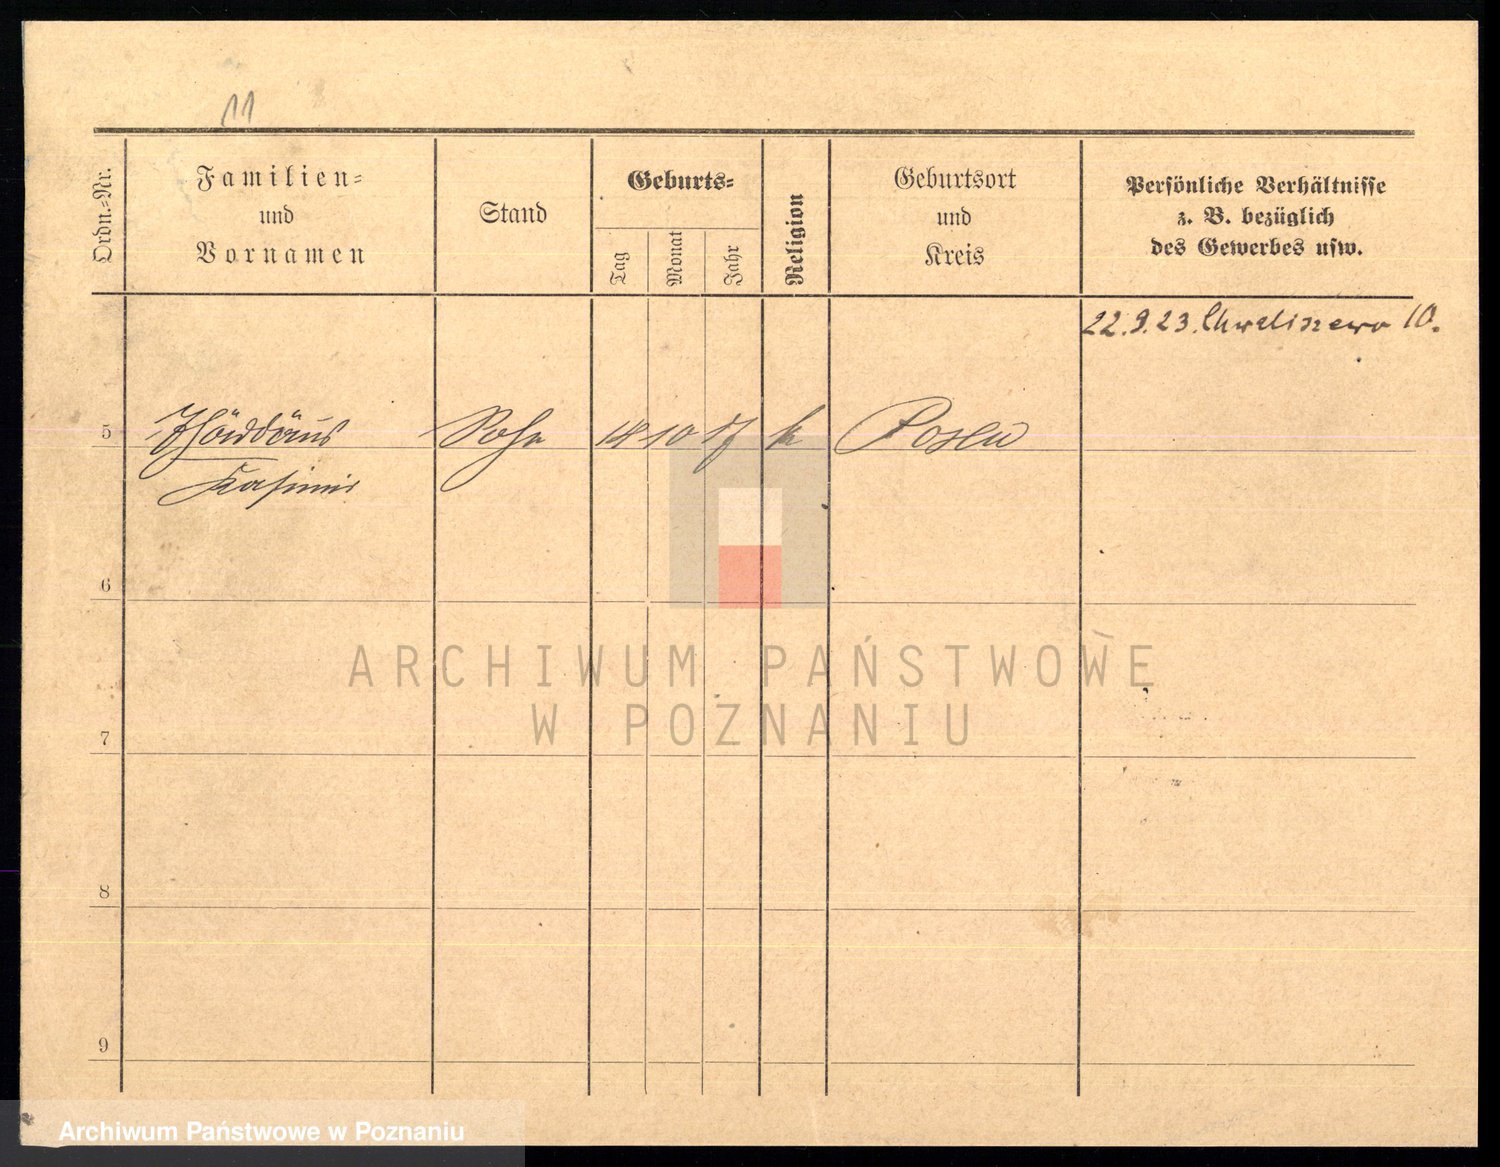 11
Ordn.-Nr.
Familien-
und
Vornamen
Stand
Geburts-
Tag
Monat
Jahr
Religion
Geburtsort
und
Kreis
Persönliche Verhältnisse
z. B. bezüglich
des Gewerbes usw.
22.9.23. Chwaliszewo 10.
5 Thaddäus Sohn 14 10 17 k Posen
Kasimir
6
ARCHIWUM PAŃSTWOWE
W POZNANIU
7
8
9
Archiwum Państwowe w Poznaniu